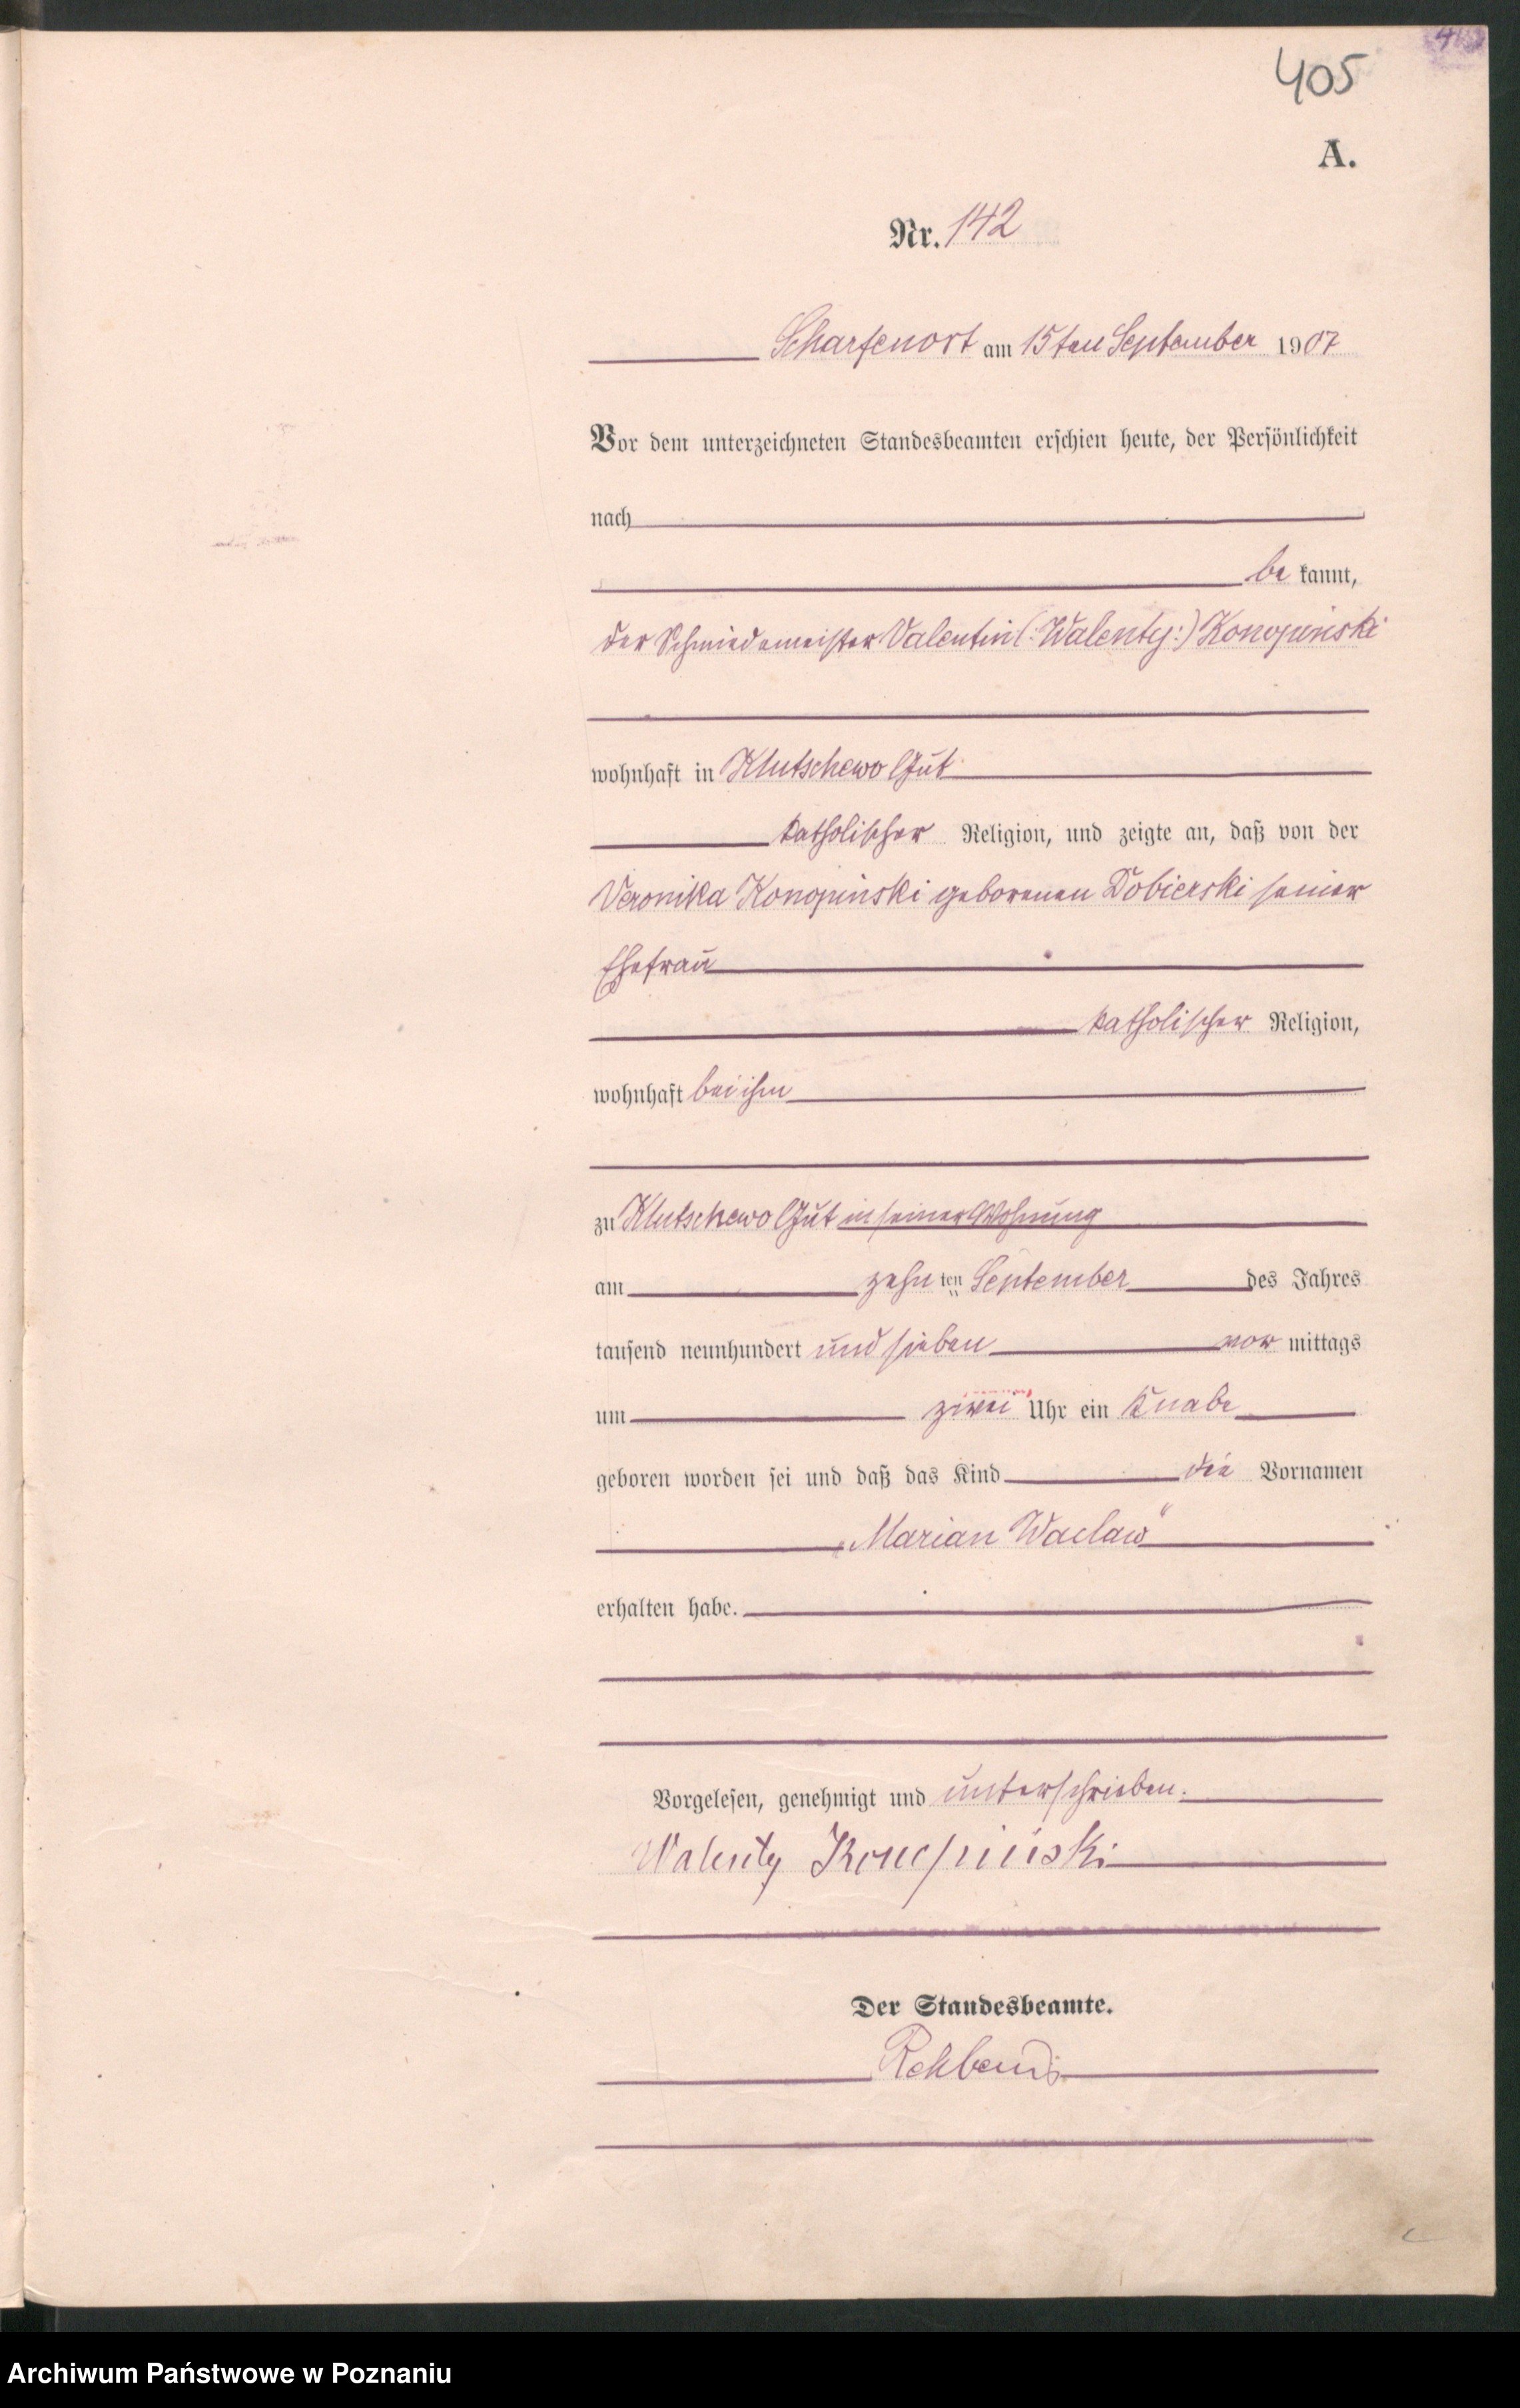 405
A.
Nr. 142
Scharfenort am 15ten September 1907
Vor dem unterzeichneten Standesbeamten erschien heute, der Persönlichkeit
nach
be kannt,
der Schmiedemeister Valentin (: Walenty :) Konopinski
wohnhaft in Klutschewo Gut
katholischer Religion, und zeigte an, daß von der
Veronika Konopinski geborenen Dobierski seiner
Ehefrau
katholischer Religion,
wohnhaft bei ihm
zu Klutschewo Gut in seiner Wohnung
am zehn ten September des Jahres
tausend neunhundert und sieben vor mittags
um zwei Uhr ein Knabe
geboren worden sei und daß das Kind die Vornamen
„Marian Waclaw“
erhalten habe.
Vorgelesen, genehmigt und unterschrieben.
Walenty Konopiński
Der Standesbeamte.
Archiwum Państwowe w Poznaniu